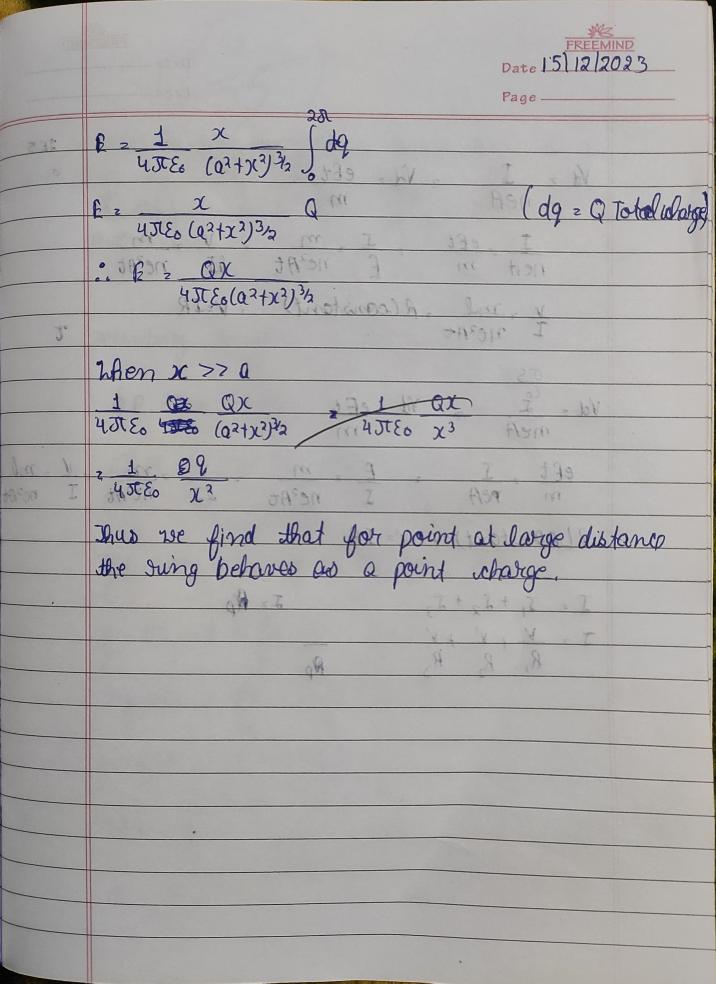 FREEMIND
Date 15/12/2023
Page
E = 1/4πε₀ x/(a²+x²)^3/2 ∫₀^2π dq
E = x/4πε₀(a²+x²)^3/2 Q (dq = Q Total charge)
∴ E = Qx/4πε₀(a²+x²)^3/2
When x >> a
1/4πε₀ Qx/(a²+x²)^3/2 = 1/4πε₀ Qx/x³
= 1/4πε₀ q/x²
Thus we find that for point at large distance
the ring behaves as a point charge.